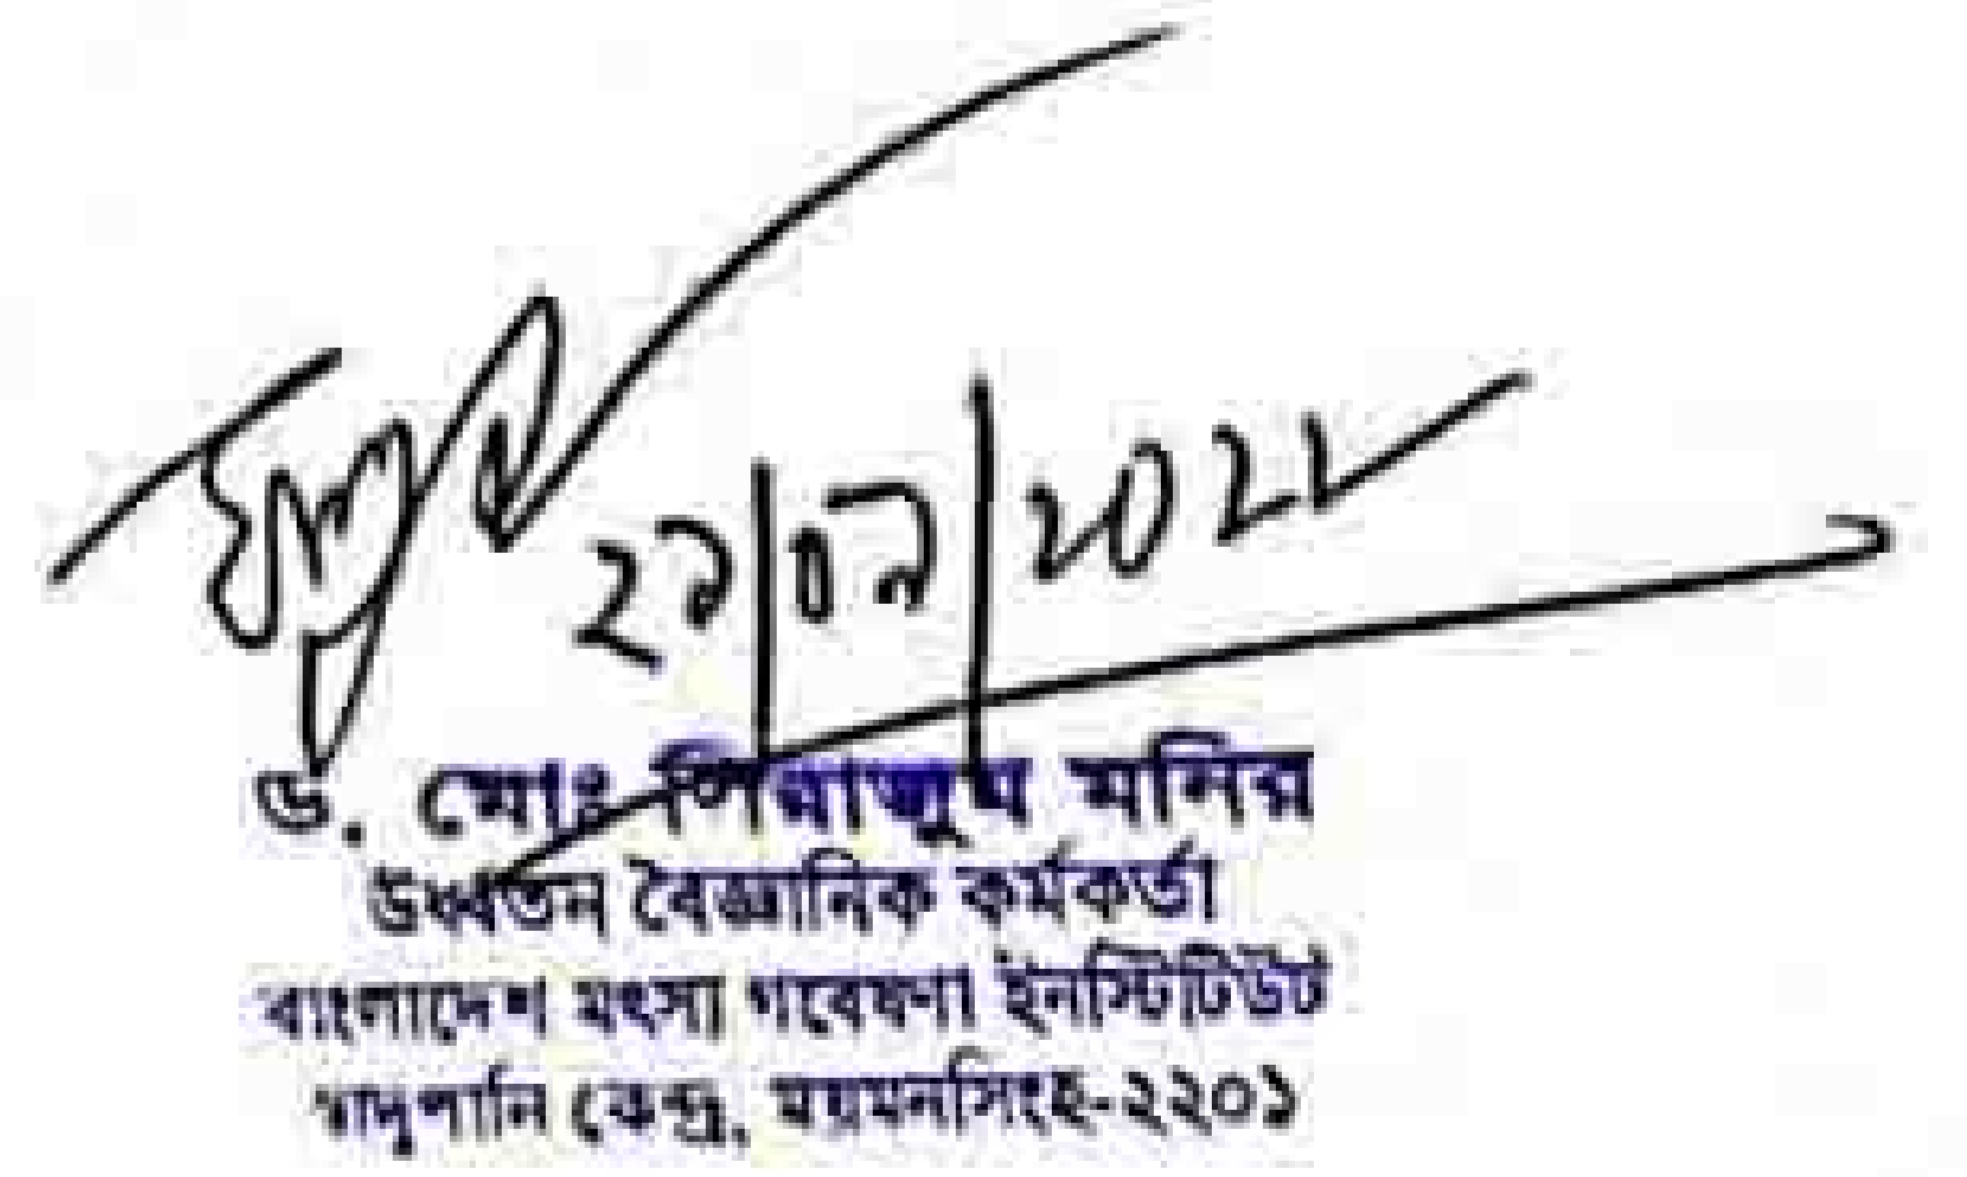 ২৯|০৯|২০২২
ড. মোঃ সিরাজুম মনির
উর্ধ্বতন বৈজ্ঞানিক কর্মকর্তা
বাংলাদেশ মৎস্য গবেষণা ইনস্টিটিউট
স্বাদুপানি কেন্দ্র, ময়মনসিংহ-২২০১